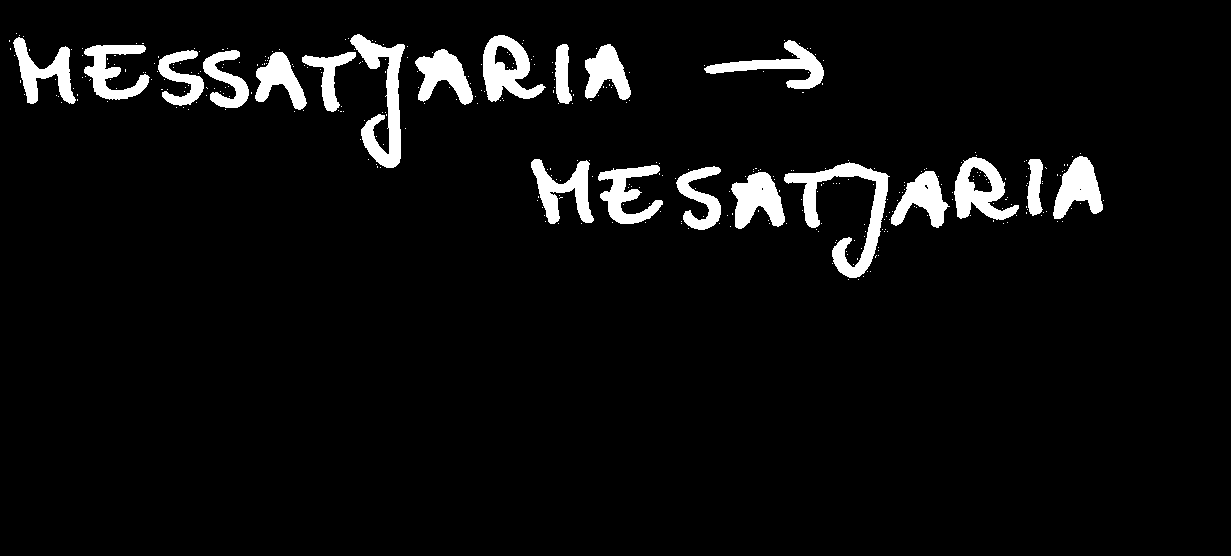 MESSATJARIA →
MESATJARIA